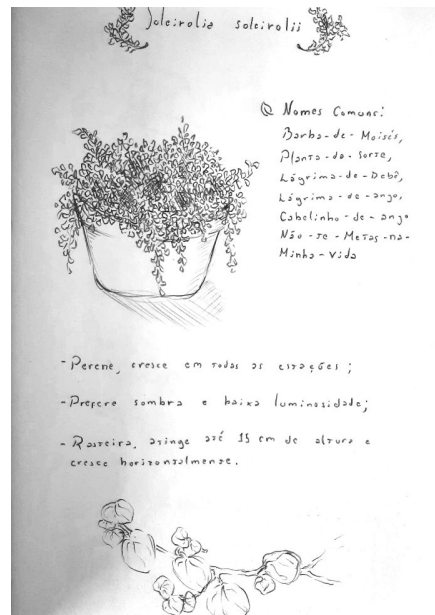 Soleirolia soleirolii
Nomes Comuns:
Barba-de-Moisés,
Planta-da-Sorte,
Lágrima-de-Bebê,
Lágrima-de-anjo,
Cabelinho-de-anjo
Não-te-Metas-na-
Minha-Vida
-Perene, cresce em todas as estações;
-Prefere sombra e baixa luminosidade;
-Rasteira, atinge até 15 cm de altura e
cresce horizontalmente.